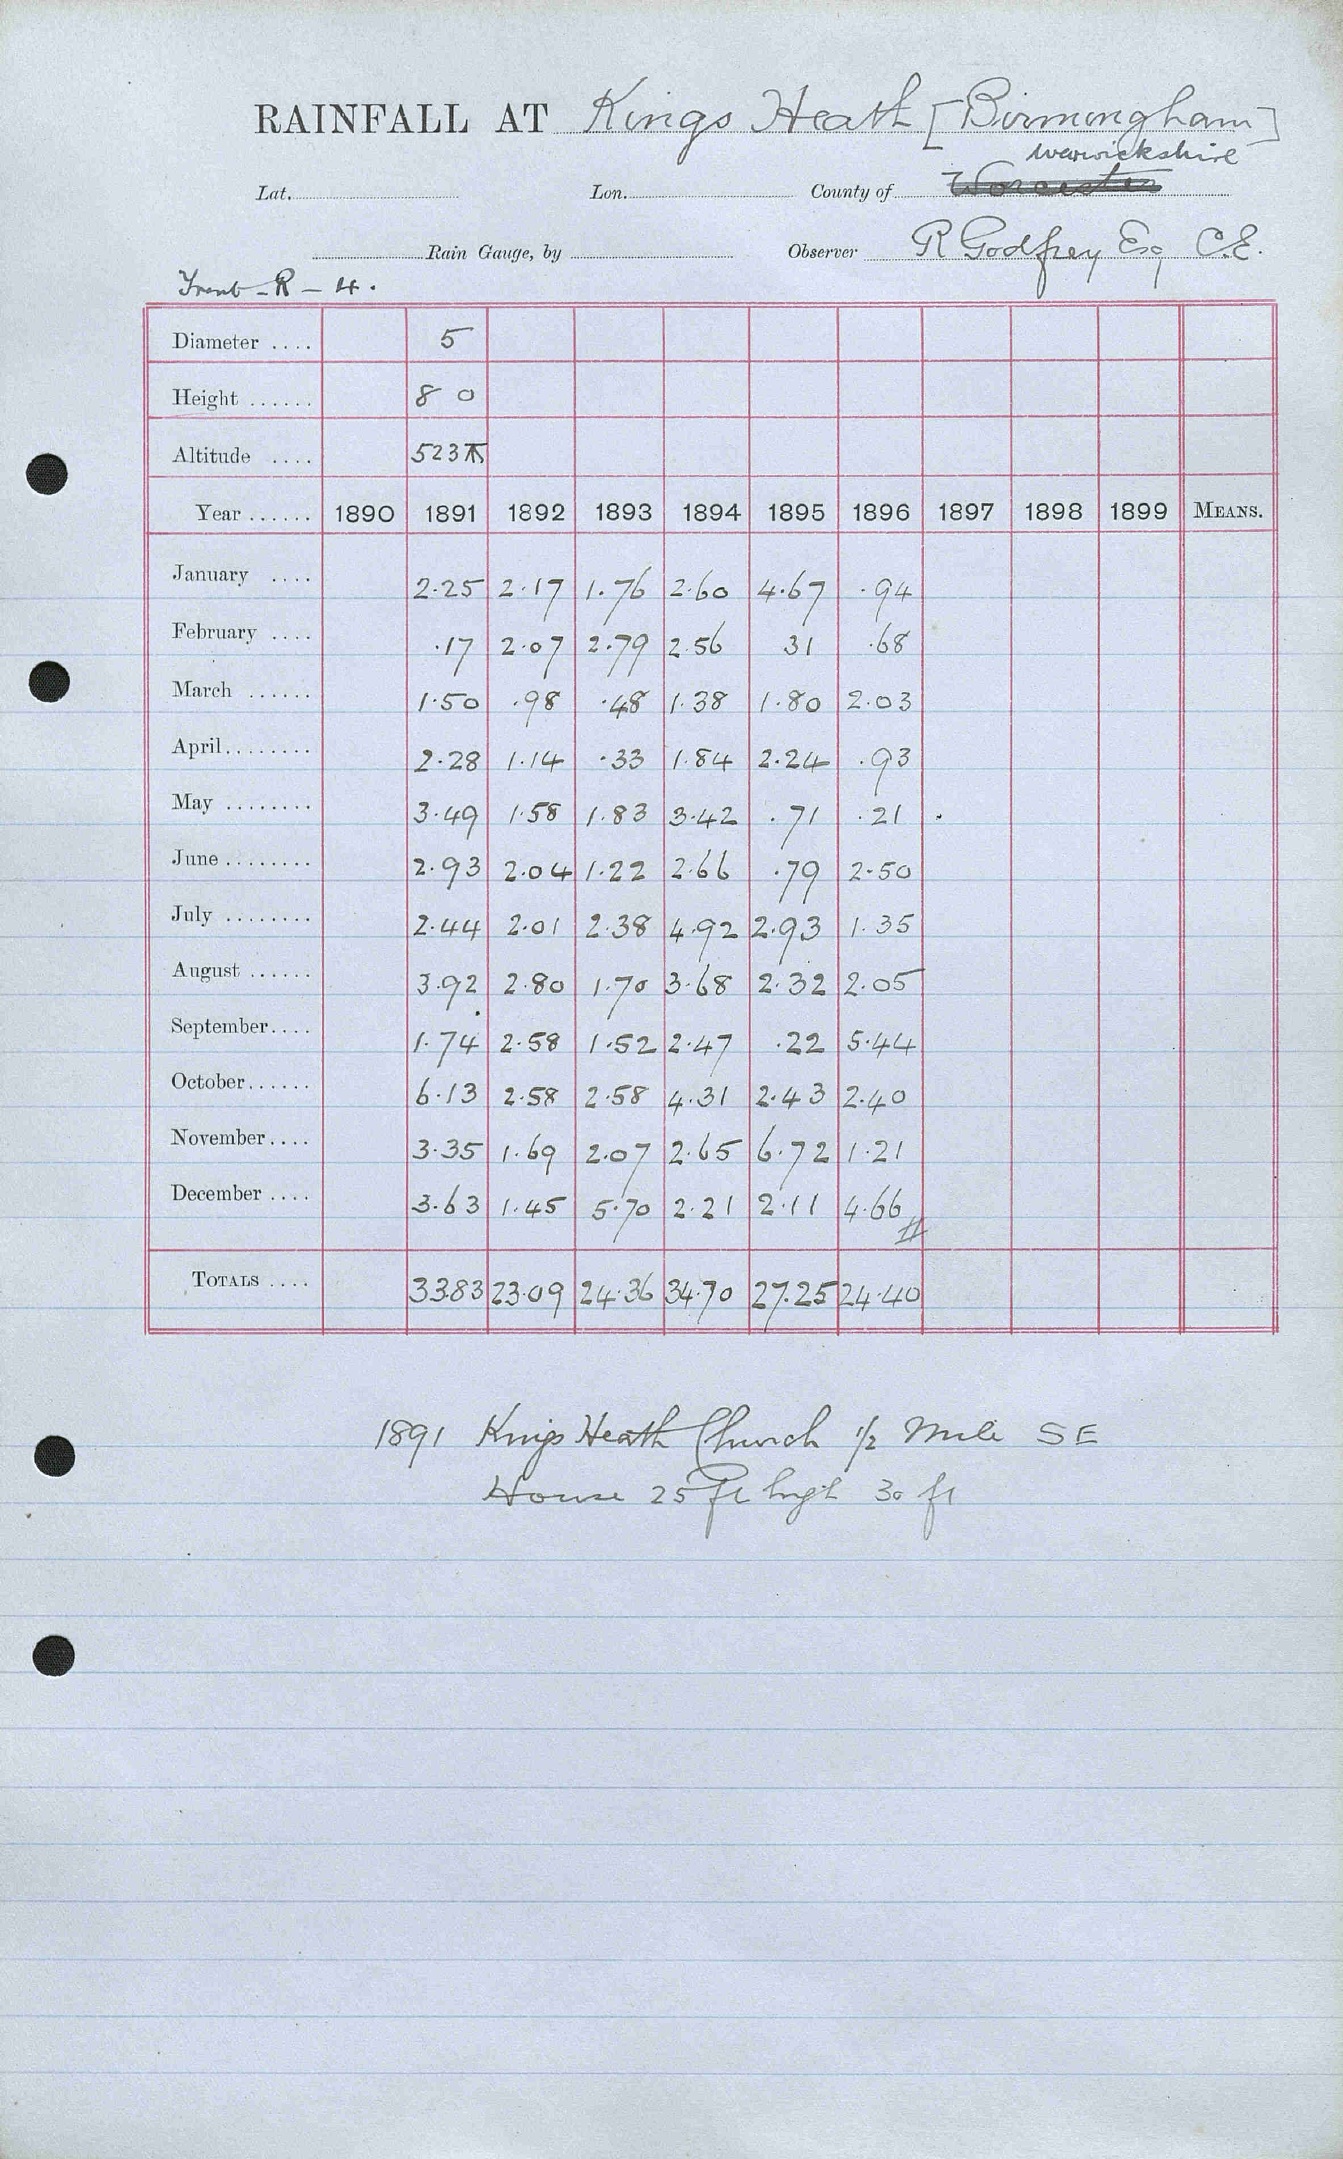 RAINFALL AT Kings Heath [Birmingham]
Warwickshire
Lat. Lon. County of Worcester
Rain Gauge, by Observer R Godfrey Esq C.E.
Trent - R - 4.
Diameter .... 5
Height ...... 8 0
Altitude .... 523
Year ...... 1890 1891 1892 1893 1894 1895 1896 1897 1898 1899 MEANS.
January .... 2.25 2.17 1.76 2.60 4.67 .94
February .... .17 2.07 2.79 2.56 31 .68
March ...... 1.50 .98 .48 1.38 1.80 2.03
April........ 2.28 1.14 .33 1.84 2.24 .93
May ........ 3.49 1.58 1.83 3.42 .71 .21
June ........ 2.93 2.04 1.22 2.66 .79 2.50
July ........ 2.44 2.01 2.38 4.92 2.93 1.35
August ...... 3.92 2.80 1.70 3.68 2.32 2.05
September.... 1.74 2.58 1.52 2.47 .22 5.44
October...... 6.13 2.58 2.58 4.31 2.43 2.40
November.... 3.35 1.69 2.07 2.65 6.72 1.21
December .... 3.63 1.45 5.70 2.21 2.11 4.66
TOTALS .... 33.83 23.09 24.36 34.70 27.25 24.40
1891 Kings Heath Church 1/2 Mile SE
House 25 ft high 30 ft